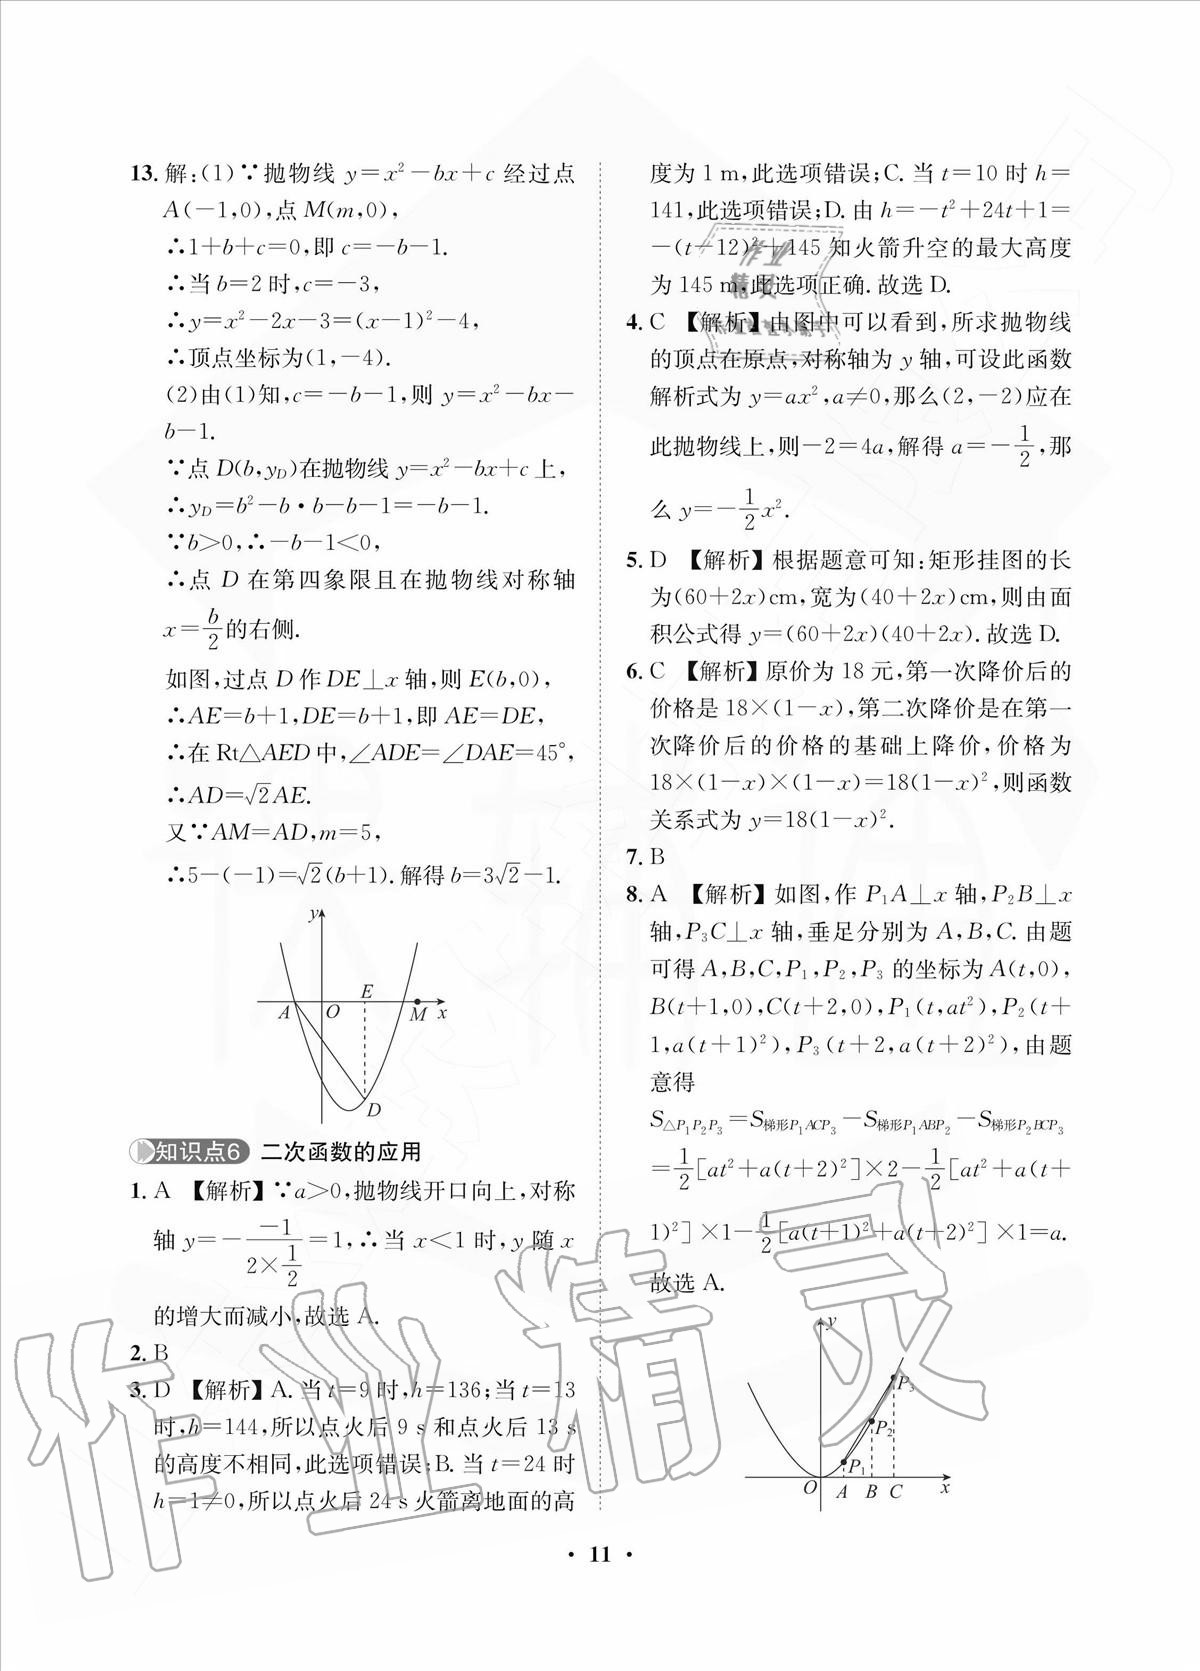 13. 解:(1)∵抛物线 y=x²-bx+c 经过点
A(-1,0),点 M(m,0),
∴1+b+c=0,即 c=-b-1.
∴当 b=2 时,c=-3,
∴y=x²-2x-3=(x-1)²-4,
∴顶点坐标为(1,-4).
(2)由(1)知,c=-b-1,则 y=x²-bx-
b-1.
∵点 D(b,y_D)在抛物线 y=x²-bx+c 上,
∴y_D=b²-b·b-b-1=-b-1.
∵b>0,∴-b-1<0,
∴点 D 在第四象限且在抛物线对称轴
x=b/2的右侧.
如图,过点 D 作 DE⊥x 轴,则 E(b,0),
∴AE=b+1,DE=b+1,即 AE=DE,
∴在 Rt△AED 中,∠ADE=∠DAE=45°,
∴AD=√2AE.
又∵AM=AD,m=5,
∴5-(-1)=√2(b+1).解得 b=3√2-1.
y
E
A O M x
D
知识点6 二次函数的应用
1. A 【解析】∵a>0,抛物线开口向上,对称
轴 y=-(-1)/(2×1/2)=1,∴当 x<1 时,y 随 x
的增大而减小,故选 A.
2. B
3. D 【解析】A.当 t=9 时,h=136;当 t=13
时,h=144,所以点火后 9 s 和点火后 13 s
的高度不相同,此选项错误;B.当 t=24 时
h=1≠0,所以点火后 24 s 火箭离地面的高
度为 1 m,此选项错误;C.当 t=10 时 h=
141,此选项错误;D.由 h=-t²+24t+1=
-(t-12)²+145 知火箭升空的最大高度
为 145 m,此选项正确.故选 D.
4. C 【解析】由图中可以看到,所求抛物线
的顶点在原点,对称轴为 y 轴,可设此函数
解析式为 y=ax²,a≠0,那么(2,-2)应在
此抛物线上,则-2=4a,解得 a=-1/2,那
么 y=-1/2x².
5. D 【解析】根据题意可知:矩形挂图的长
为(60+2x)cm,宽为(40+2x)cm,则由面
积公式得 y=(60+2x)(40+2x).故选 D.
6. C 【解析】原价为 18 元,第一次降价后的
价格是 18×(1-x),第二次降价是在第一
次降价后的价格的基础上降价,价格为
18×(1-x)×(1-x)=18(1-x)²,则函数
关系式为 y=18(1-x)².
7. B
8. A 【解析】如图,作 P₁A⊥x 轴,P₂B⊥x
轴,P₃C⊥x 轴,垂足分别为 A,B,C.由题
可得 A,B,C,P₁,P₂,P₃ 的坐标为 A(t,0),
B(t+1,0),C(t+2,0),P₁(t,at²),P₂(t+
1,a(t+1)²),P₃(t+2,a(t+2)²),由题
意得
S△P₁P₂P₃=S梯形P₁ACP₃-S梯形P₁ABP₂-S梯形P₂BCP₃
=1/2[at²+a(t+2)²]×2-1/2[at²+a(t+
1)²]×1-1/2[a(t+1)²+a(t+2)²]×1=a.
故选 A.
y
P₃
P₂
P₁
O A B C x
· 11 ·
作业精灵
作业
精灵